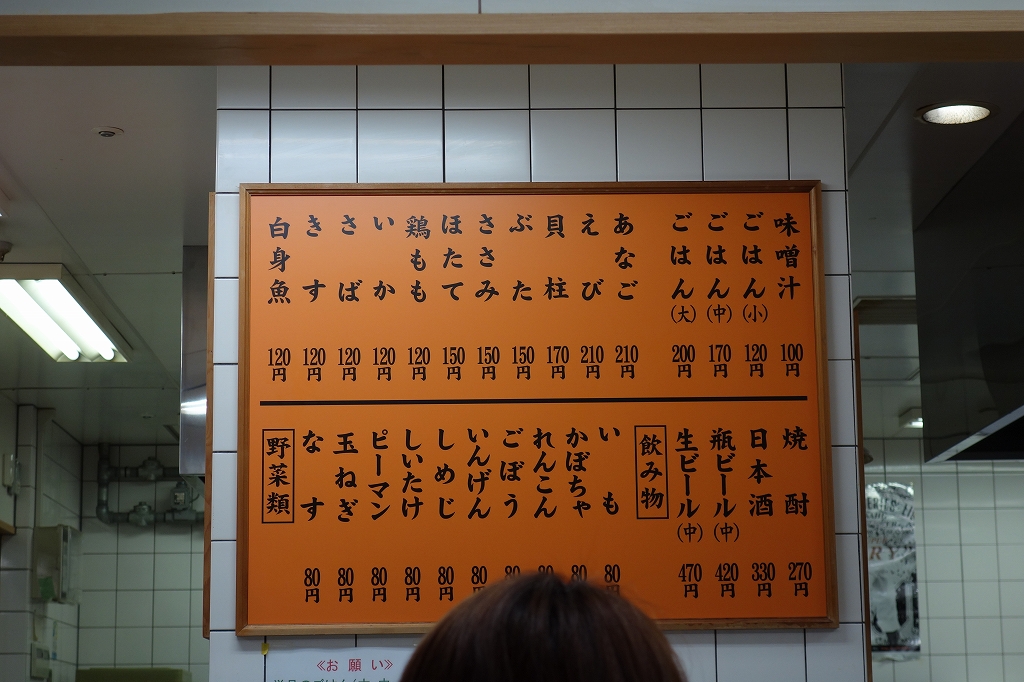 味噌汁 100円
ごはん(小) 120円
ごはん(中) 170円
ごはん(大) 200円
あなご 210円
えび 210円
貝柱 170円
ぶた 150円
ささみ 150円
ほたて 150円
鶏もも 120円
いか 120円
さば 120円
きす 120円
白身魚 120円
焼酎 270円
日本酒 330円
瓶ビール(中) 420円
生ビール(中) 470円
飲み物
いも 80円
かぼちゃ 80円
れんこん
ごぼう 80
いんげん 80円
しめじ 80円
しいたけ 80円
ピーマン 80円
玉ねぎ 80円
なす 80円
野菜類
≪お願い≫